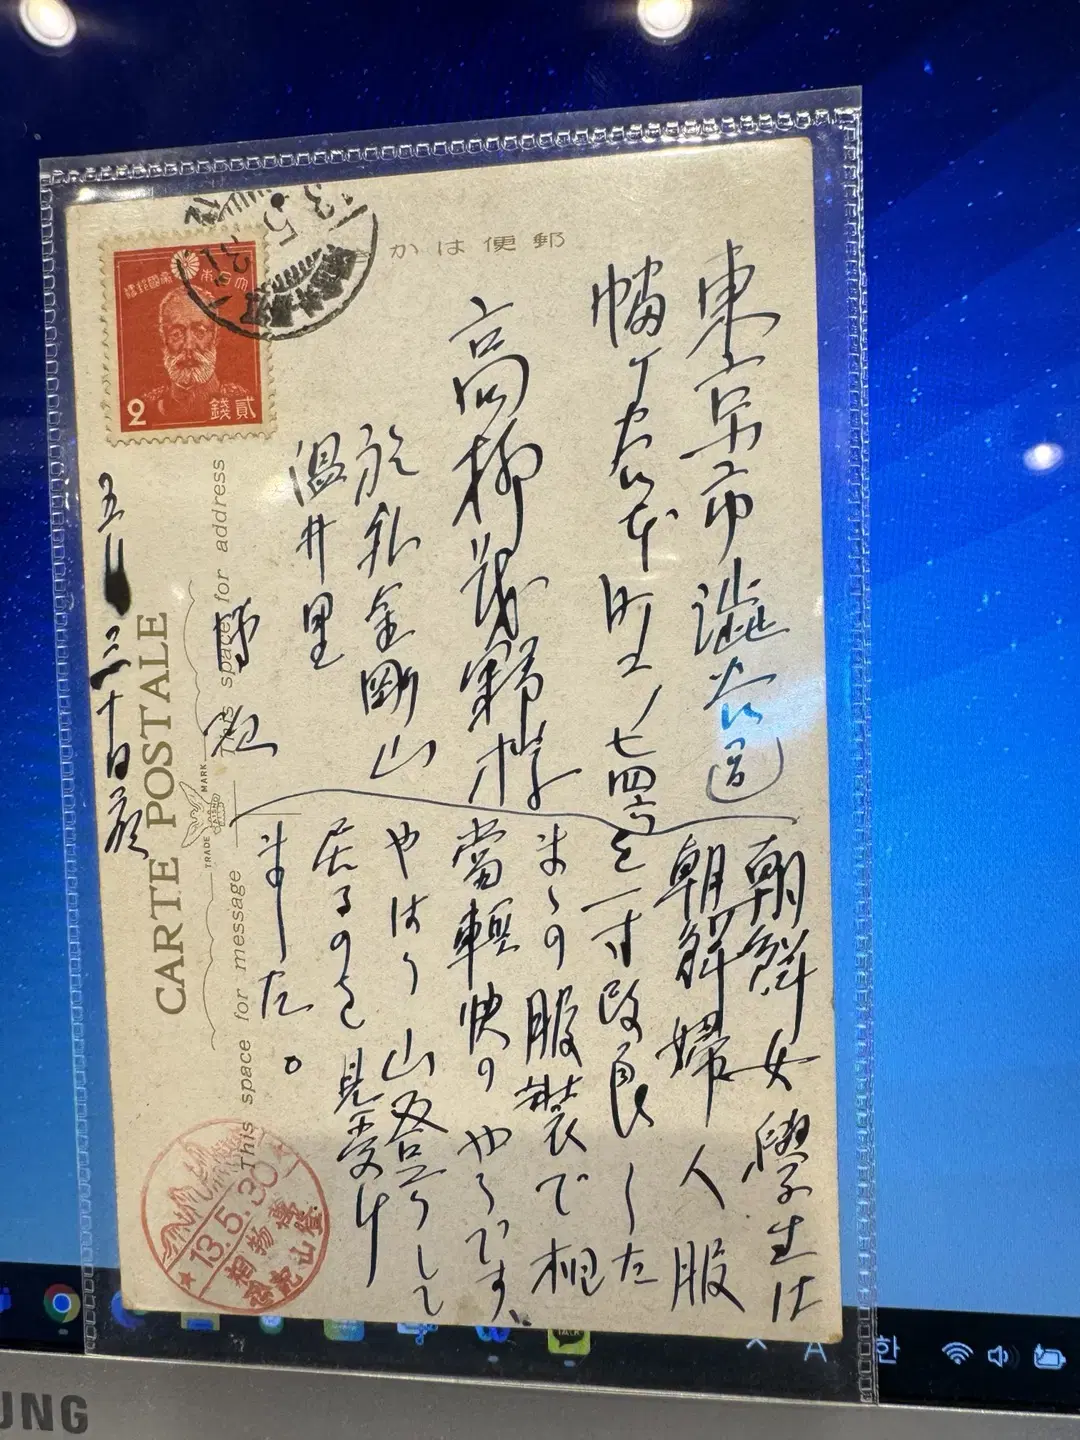 郵便はかき
東京市澁谷區
幡ヶ谷本町二ノ七四号
高柳茂野様
於外金剛山
温井里
五月三十日夜
朝鮮女學生は
朝鮮婦人服
を一寸改良した
まゝの服装で相
當軽快のやうです、
やはり山登りして
居るのを見受け
ました。
CARTE POSTALE
This space for address
TRADE MARK
This space for message
大日本帝國郵便
2
貳錢
13.5.30
13.5
登山記念
SUNG
A
한
TALK